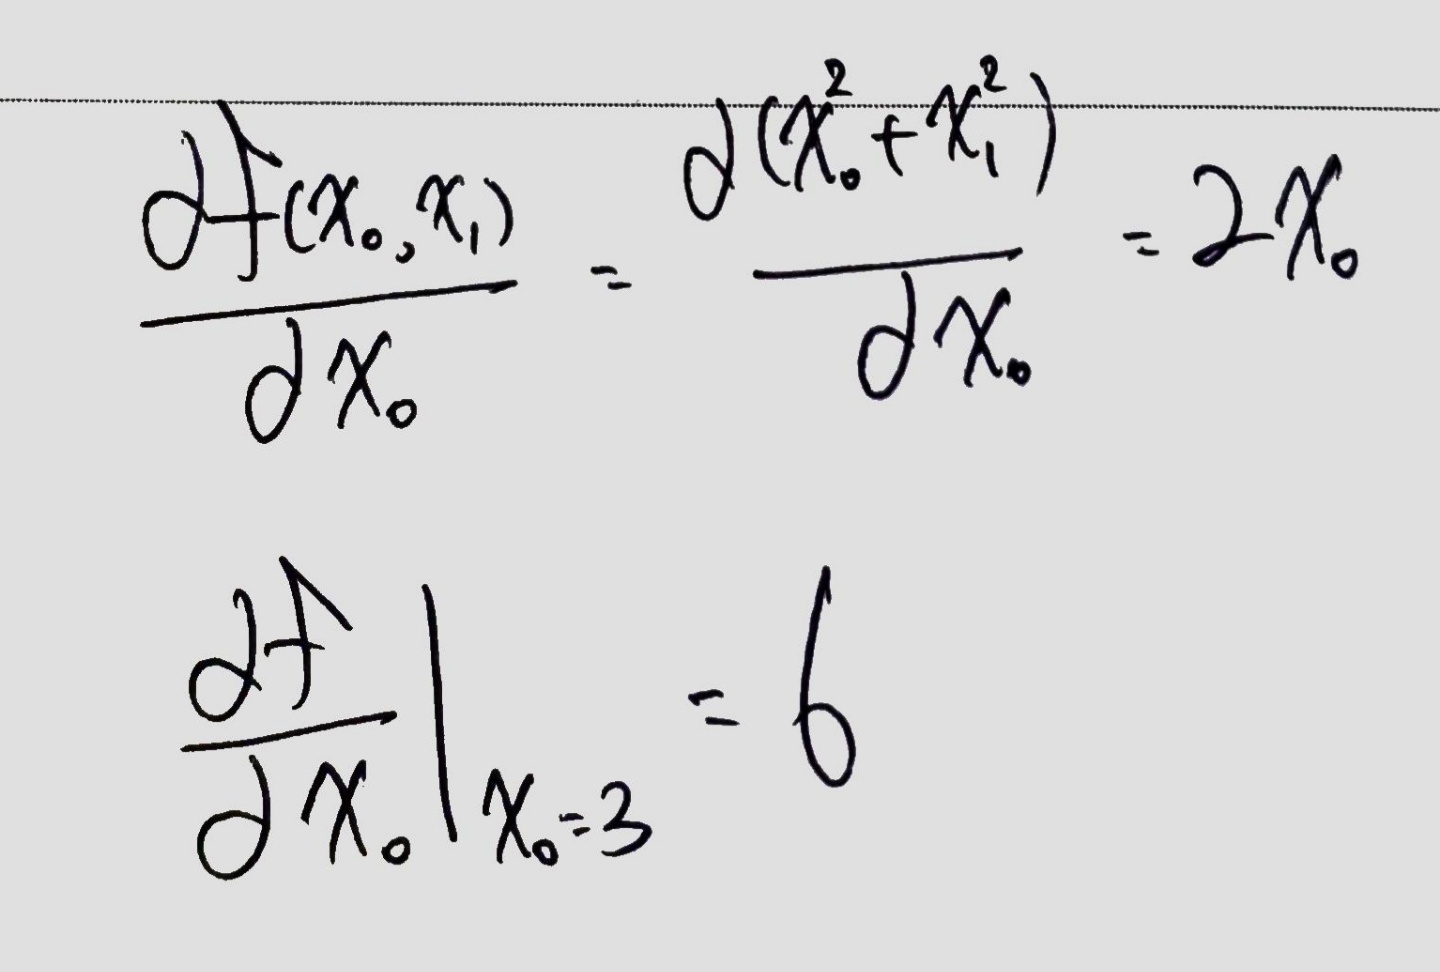 ∂f(x₀, x₁)/∂x₀ = ∂(x₀² + x₁²)/∂x₀ = 2x₀
∂f/∂x₀ |x₀=3 = 6